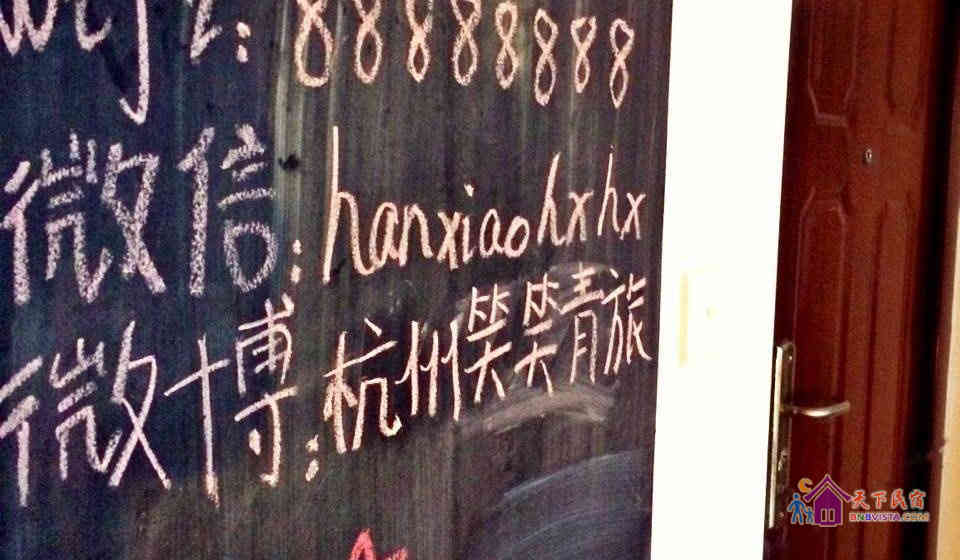 wifi: 88888888
微信: hanxiaohxhx
微博: 杭州笑笑青旅
天下民宿
BNBVISTA.COM